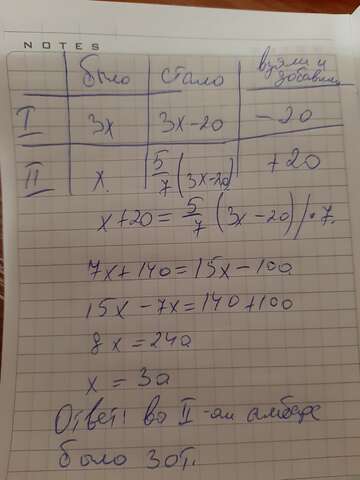 NOTES
было стало взяли и добавили
I 3x 3x-20 -20
II x. 5/7(3x-20) +20
x+20=5/7(3x-20)/·7.
7x+140=15x-100
15x-7x=140+100
8x=240
x=30
Ответ! во II-ом амбаре
было 30т.